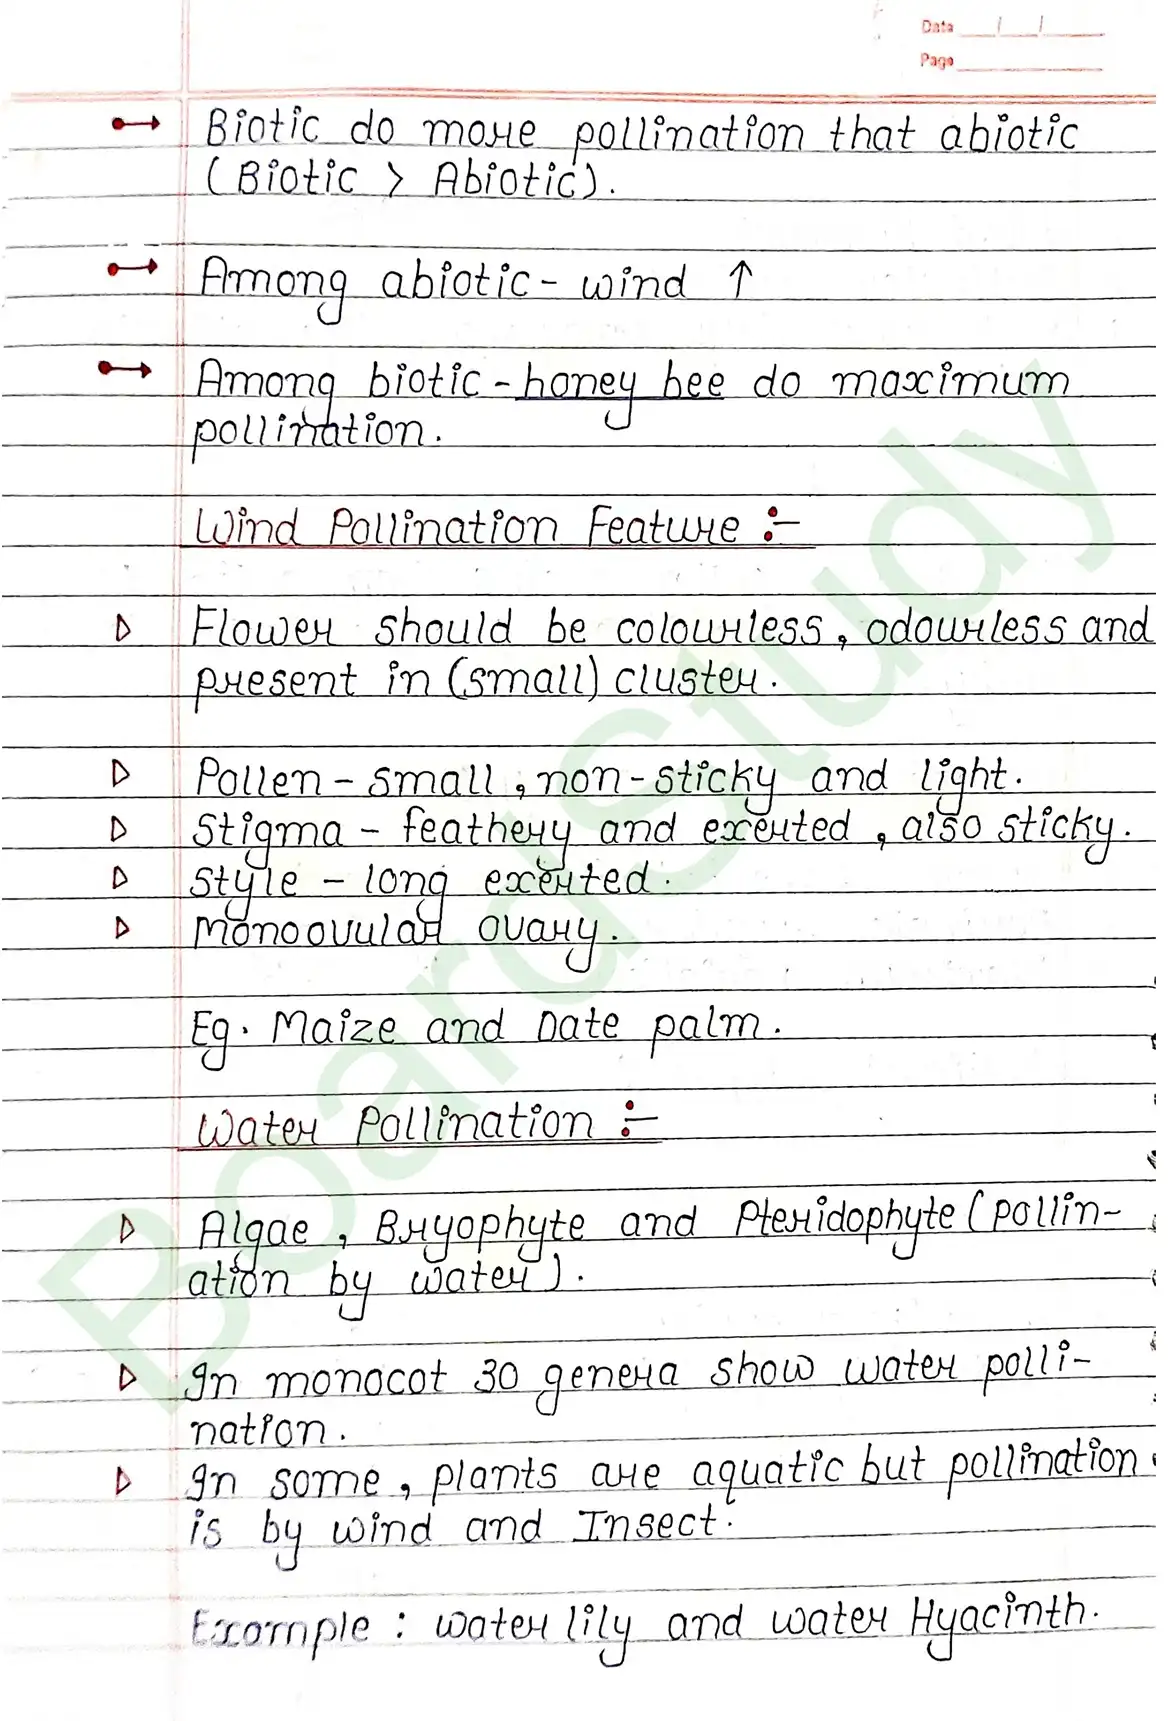 Data __/__/__
Page
Biotic do more pollination that abiotic
(Biotic > Abiotic).
Among abiotic - wind ↑
Among biotic - honey bee do maximum
pollination.
Wind Pollination Feature :-
Flower should be colourless, odourless and
present in (small) cluster.
Pollen - small, non-sticky and light.
Stigma - feathery and exerted, also sticky.
Style - long exerted.
Monoovular ovary.
Eg. Maize and Date palm.
Water Pollination :-
Algae, Bryophyte and Pteridophyte (pollin-
ation by water).
In monocot 30 genera show water polli-
nation.
In some, plants are aquatic but pollination
is by wind and Insect.
Example : water lily and water Hyacinth.
BoardStudy